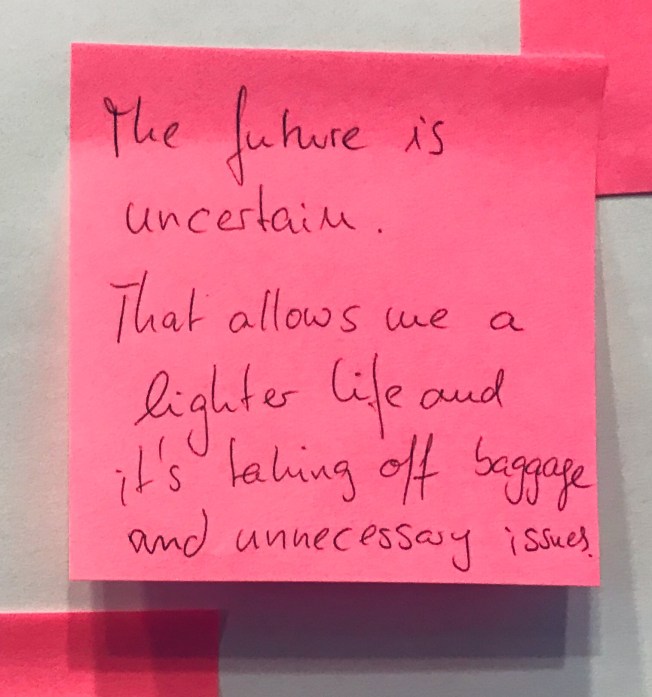 The future is
uncertain.
That allows me a
lighter life and
it's taking off baggage
and unnecessary issues.